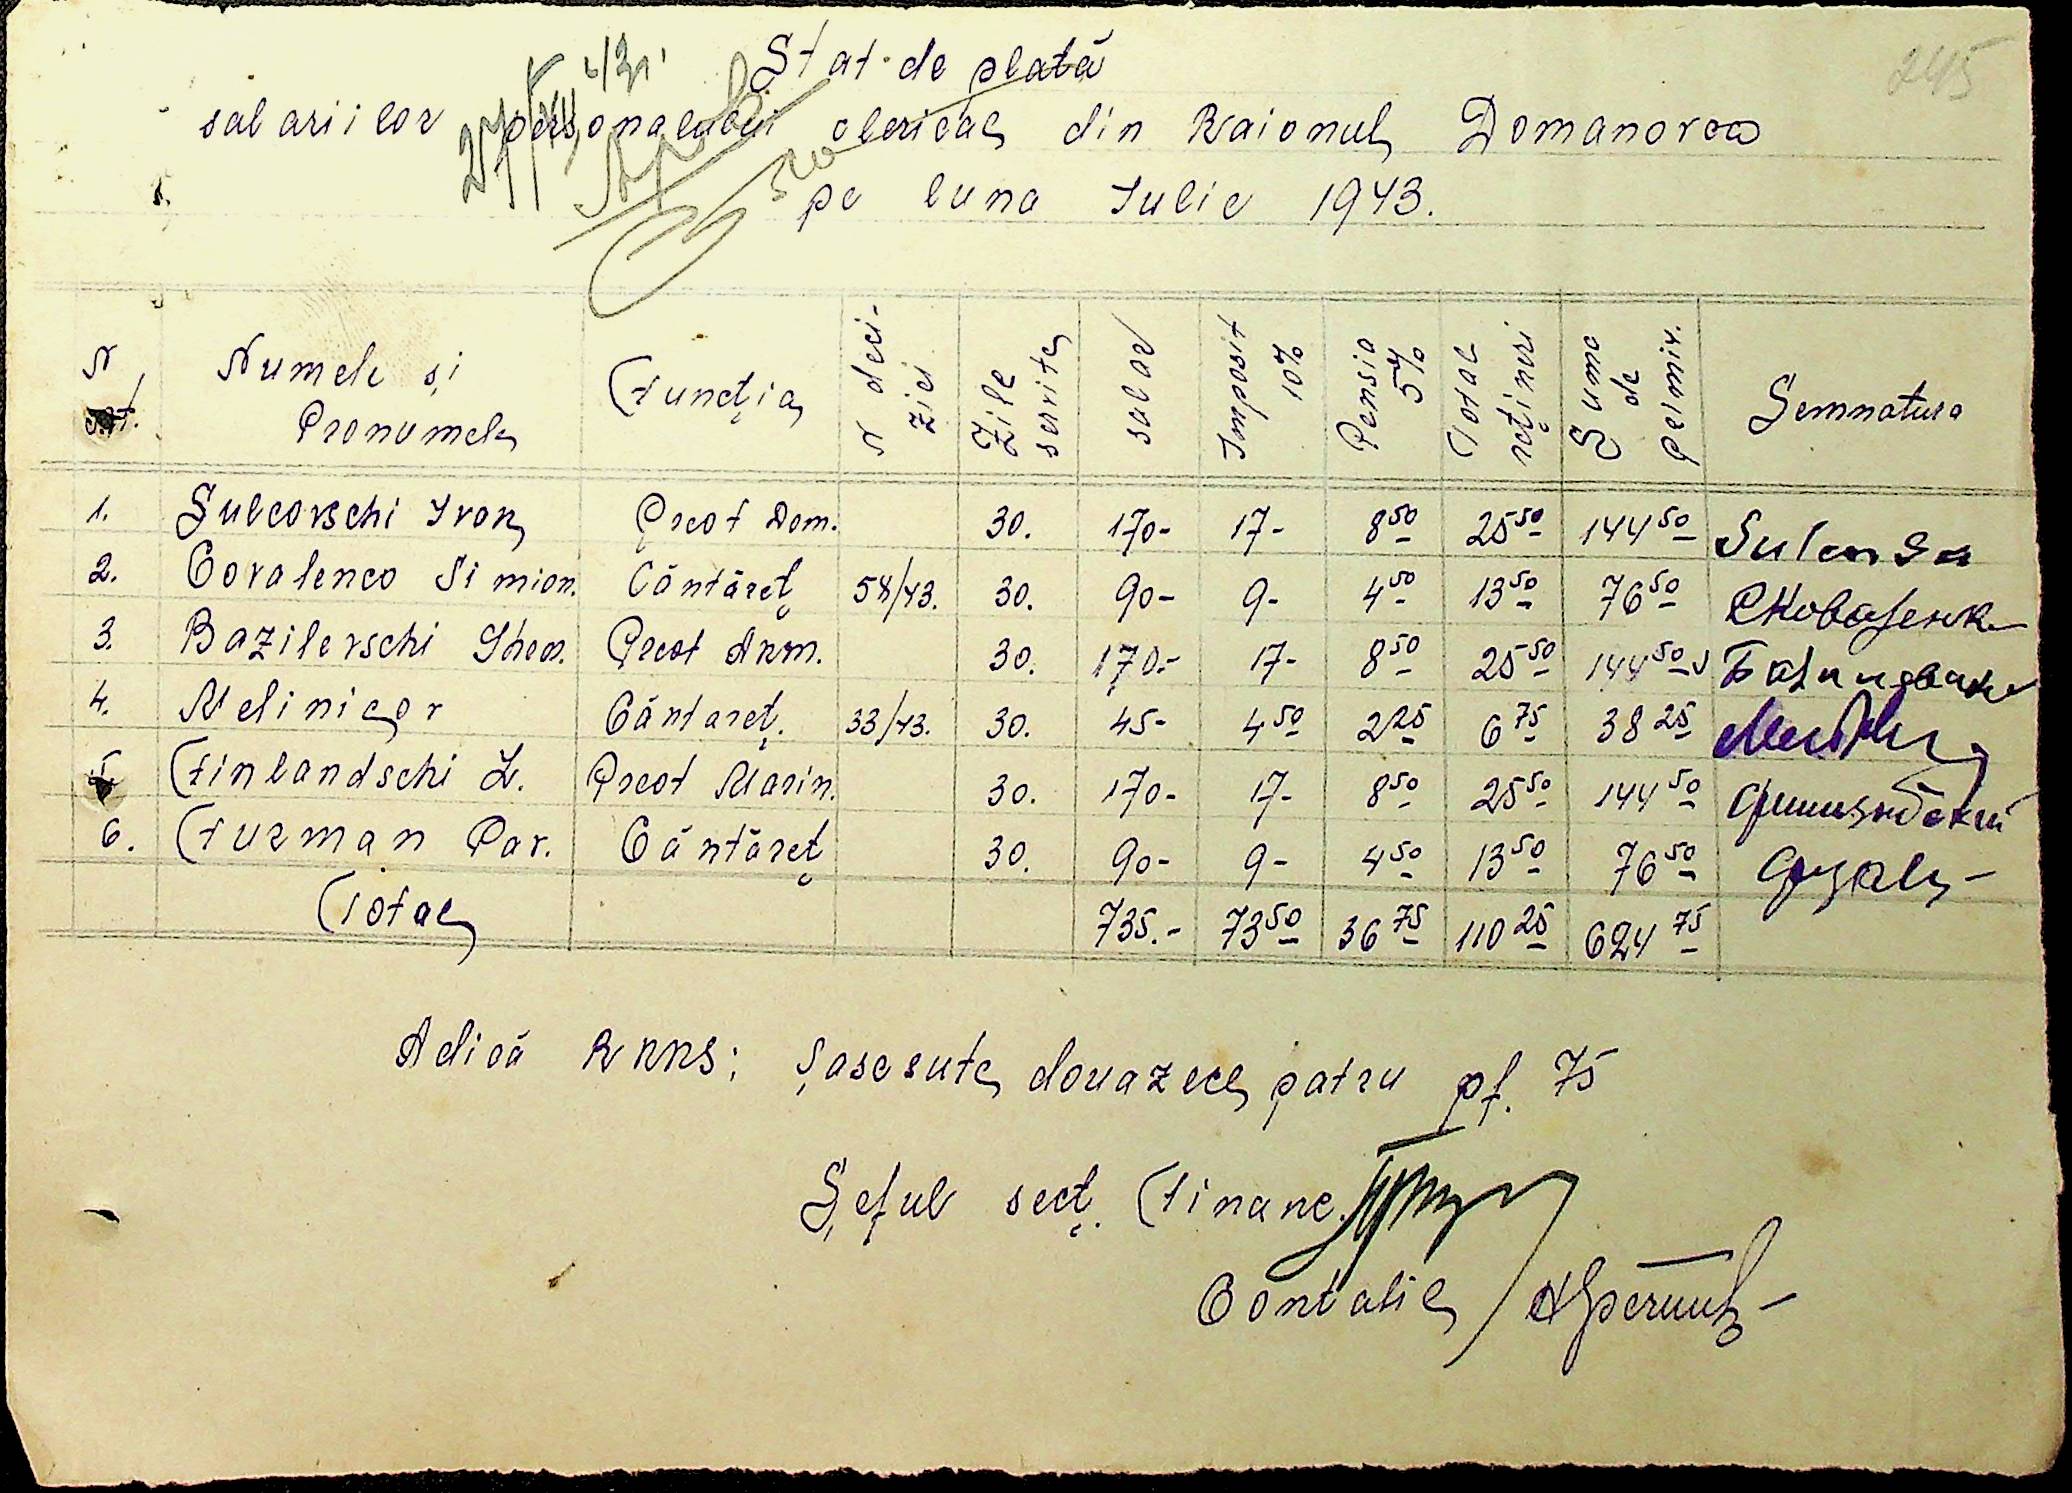 245
Stat de plată
salariilor personalului clerical din Raionul Domanovca
pe luna Iulie 1943.
N crt. Numele și Pronumele Funcția N deci-zici Zile servite salar Imposit 10% Pensia 5% Total rețineri Suma de primir. Semnatura
1. Sulcovschi Ivan Preot Dom. 30. 170- 17- 8 50 25 50 144 50
2. Covalenco Simion. Cântăreț 58/43. 30. 90- 9- 4 50 13 50 76 50
3. Bazilevschi Gheor. Preot Akm. 30. 170.- 17- 8 50 25 50 144 50
4. Melinicov Cântareț. 33/43. 30. 45- 4 50 2 25 6 75 38 25
5. Finlandschi L. Preot Marin. 30. 170- 17- 8 50 25 50 144 50
6. Furman Pav. Cântăreț 30. 90- 9- 4 50 13 50 76 50
Total 735.- 73 50 36 75 110 25 624 75
Adică RKKS; șasesute douazeci patru pf. 75
Șeful secț. Financ.
Contabil